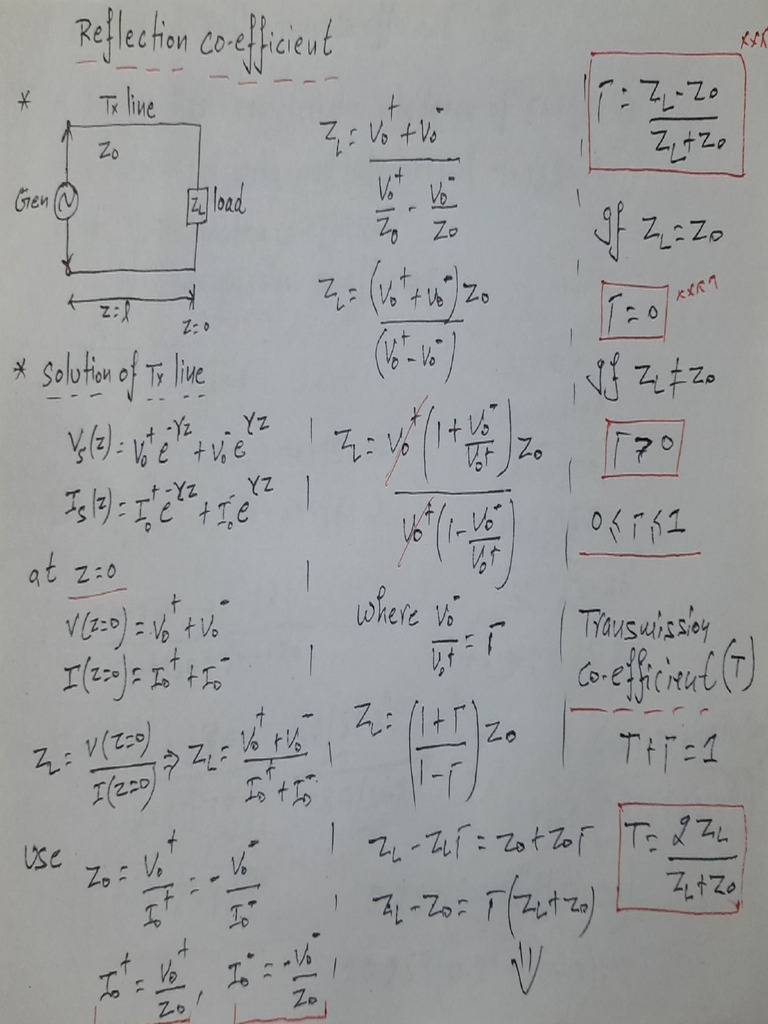 Reflection co-efficient
* Tx line
Z₀
Gen Z_L load
z=l
z=0
* Solution of Tx line
V_s(z) = V₀⁺ e^{-γz} + V₀⁻ e^{γz}
I_s(z) = I₀⁺ e^{-γz} + I₀⁻ e^{γz}
at z=0
V(z=0) = V₀⁺ + V₀⁻
I(z=0) = I₀⁺ + I₀⁻
Z_L = V(z=0) / I(z=0) ⇒ Z_L = (V₀⁺ + V₀⁻) / (I₀⁺ + I₀⁻)
use Z₀ = V₀⁺ / I₀⁺ = - V₀⁻ / I₀⁻
I₀⁺ = V₀⁺ / Z₀ , I₀⁻ = -V₀⁻ / Z₀
Z_L = (V₀⁺ + V₀⁻) / (V₀⁺/Z₀ - V₀⁻/Z₀)
Z_L = (V₀⁺ + V₀⁻) Z₀ / (V₀⁺ - V₀⁻)
Z_L = V₀⁺ (1 + V₀⁻/V₀⁺) Z₀ / V₀⁺ (1 - V₀⁻/V₀⁺)
where V₀⁻ / V₀⁺ = Γ
Z_L = ((1+Γ) / (1-Γ)) Z₀
Z_L - Z_L Γ = Z₀ + Z₀ Γ
Z_L - Z₀ = Γ (Z_L + Z₀)
⇓
Γ = (Z_L - Z₀) / (Z_L + Z₀)
If Z_L = Z₀
Γ = 0
If Z_L ≠ Z₀
Γ > 0
0 ≤ Γ ≤ 1
Transmission
co-efficient (T)
T + Γ = 1
T = 2 Z_L / (Z_L + Z₀)